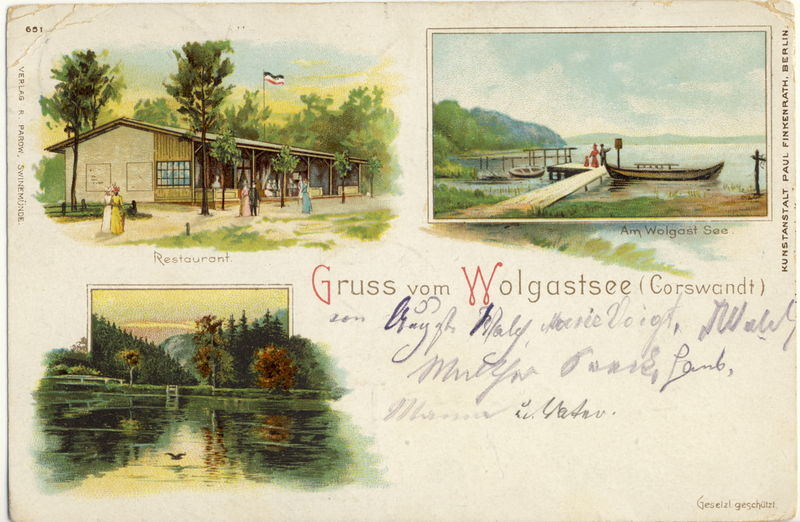 651
VERLAG R. PAROW, SWINEMÜNDE.
Restaurant.
Am Wolgast See.
KUNSTANSTALT PAUL FINKENRATH, BERLIN.
Gruss vom Wolgastsee (Corswandt)
von August Marie Voigt,
Mama u. Vater.
Gesetzl. geschützt.